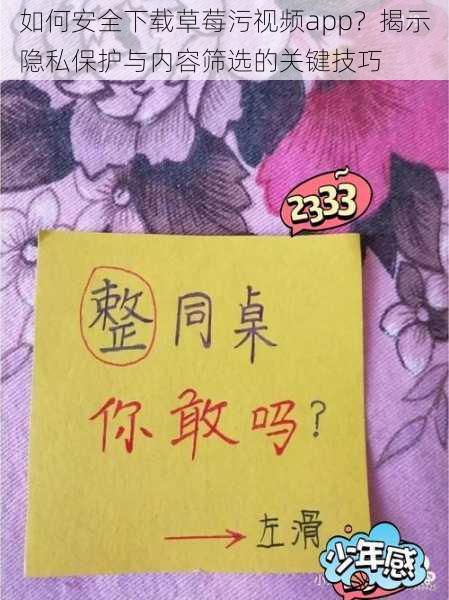 如何安全下载草莓污视频app？揭示
隐私保护与内容筛选的关键技巧
2333~
整同桌
你敢吗?
左滑
少年感
小